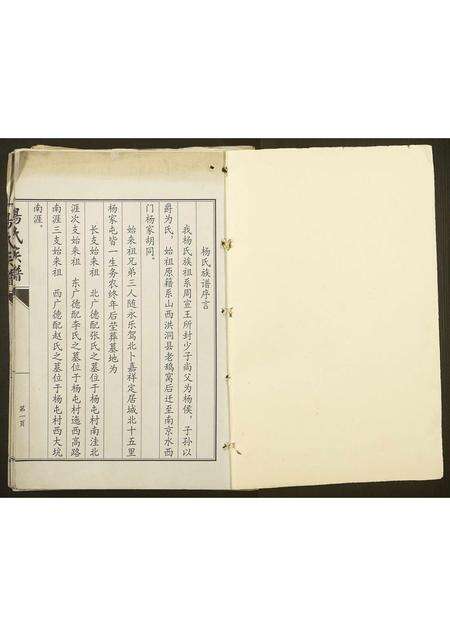 杨氏族谱序言
我杨氏族祖系周宣王所封少子尚父为杨侯，子孙以
爵为氏，始祖原籍系山西洪洞县老鸹窝后迁至南京水西
门杨家胡同。
始来祖兄弟三人随永乐驾北卜嘉祥定居城北十五里
杨家屯皆一生务农终年后茔葬墓地为
长支始来祖 北广德配张氏之墓位于杨屯村南洼北
涯次支始来祖 东广德配李氏之墓位于杨屯村迤西高路
南涯三支始来祖 西广德配赵氏之墓位于杨屯村西大坑
南涯。
杨氏族谱
第一页